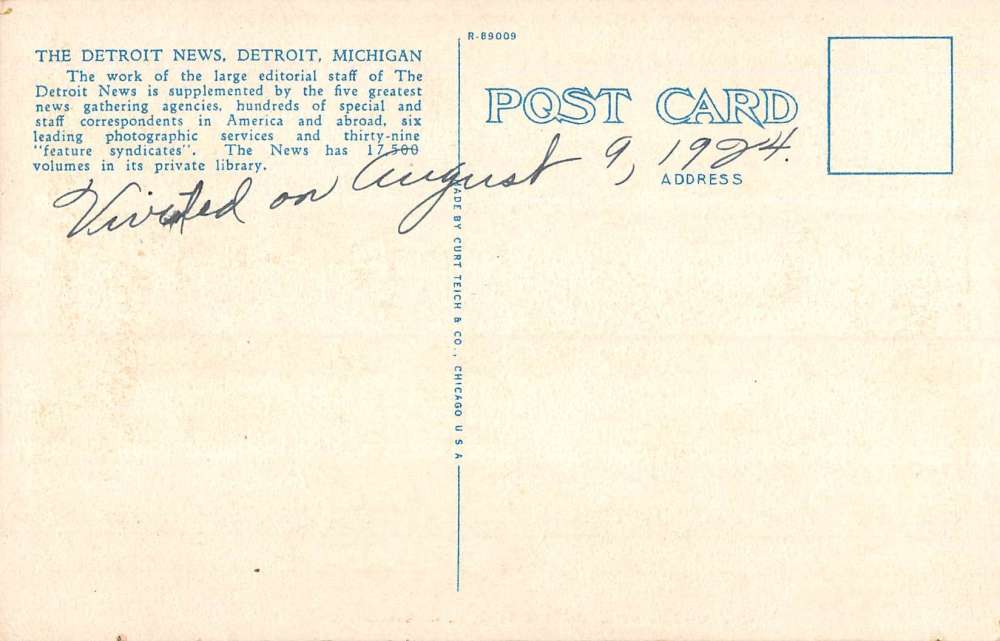 R-89009
THE DETROIT NEWS, DETROIT, MICHIGAN
The work of the large editorial staff of The
Detroit News is supplemented by the five greatest
news gathering agencies, hundreds of special and
staff correspondents in America and abroad, six
leading photographic services and thirty-nine
"feature syndicates". The News has 17,500
volumes in its private library.
POST CARD
ADDRESS
Visited on August 9, 1924.
MADE BY CURT TEICH & CO., CHICAGO U S A